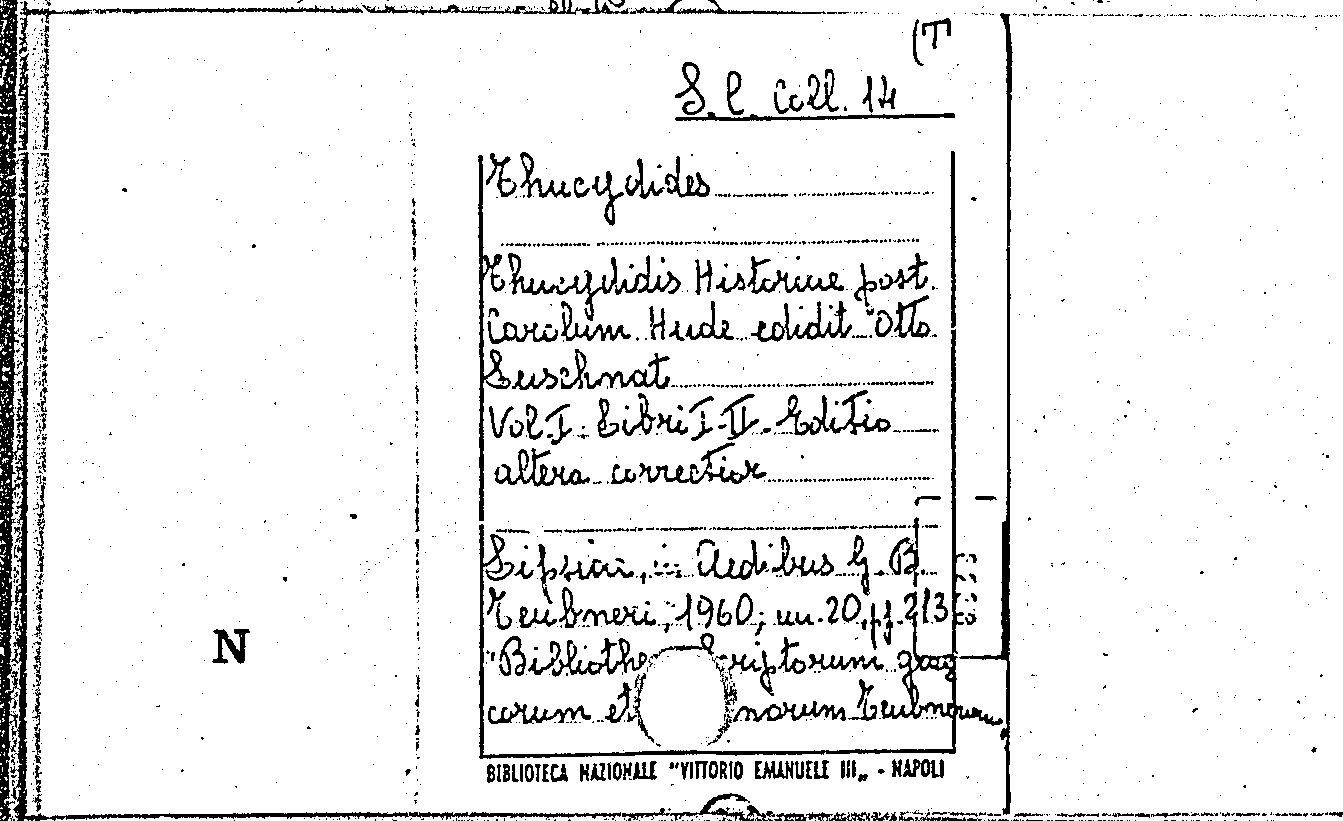 (T
S. l. Coll. 14
Thucydides
Thucydidis Historiae post
Carolum Hude edidit Otto
Luschnat
Vol. I. Libri I-II. Editio
altera correctior
Lipsiae, in Aedibus G. B.
Teubneri, 1960, in. 20, pp. 213
"Bibliothe criptorum grae
corum et norum Teubneriana
N
BIBLIOTECA NAZIONALE "VITTORIO EMANUELE III„ - NAPOLI